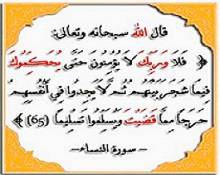 قال الله سبحانه وتعالى:
﴿ فَلَا وَرَبِّكَ لَا يُؤْمِنُونَ حَتَّىٰ يُحَكِّمُوكَ
فِيمَا شَجَرَ بَيْنَهُمْ ثُمَّ لَا يَجِدُوا فِي أَنْفُسِهِمْ
حَرَجًا مِمَّا قَضَيْتَ وَيُسَلِّمُوا تَسْلِيمًا (65) ﴾
– سورة النساء –